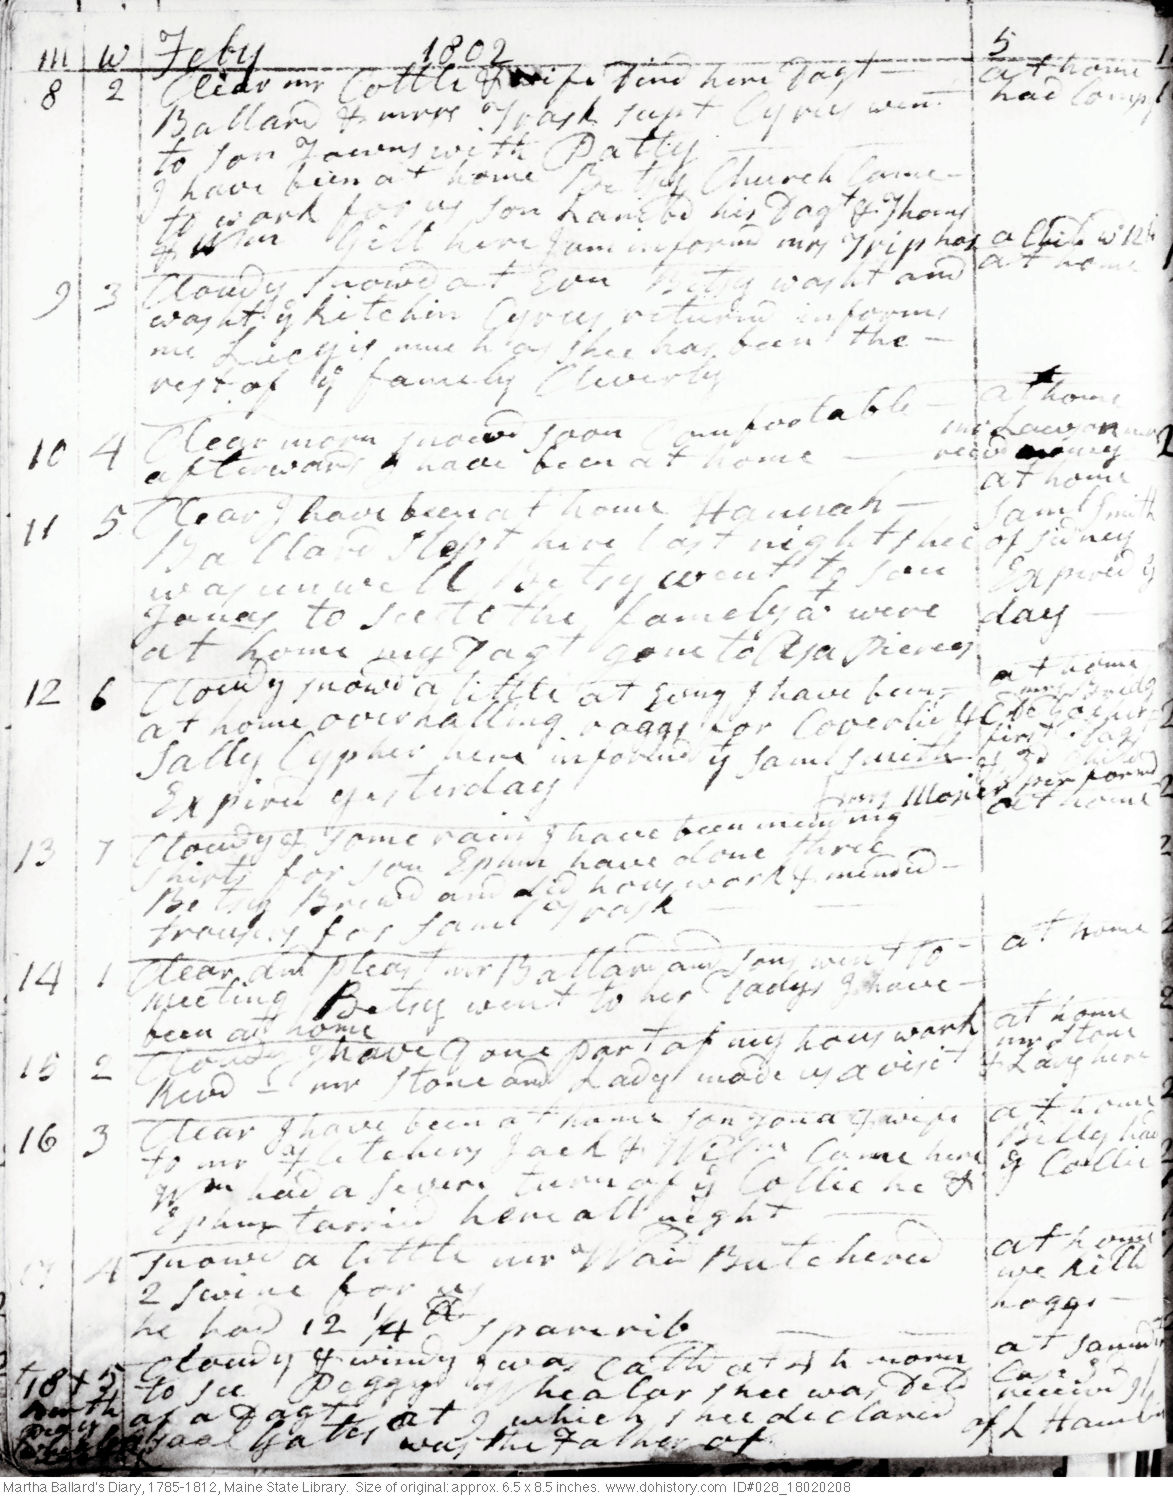 m w Feby 1802 5
8 2 Clear mr Cottle & wife Dind here Dagt - at home
Ballard & mrss Trask supt Cyrus went had Comp
to son Towns with Patty
I have been at home Betsy Church Came -
to work for us son Lambd his Dagt & Thoms
& Wm Gill here I am informd mrs Trip has a Child
9 3 Cloudy snowd at Evn Betsy washt and at home
washt ye kitchin Cyrus returnd informs
me Lucy is much as shee has been the -
rest of ye famely Cleverly
10 4 Clear morn snowd soon Comfootable - at home
afterwards I have been at home - mr Lawson
recd money
11 5 Clear I have been at home Hannah - at home
Ballard Slept here last night shee Saml Smith
was unwell Betsy went to son of Sidney
Jonas to see to the famely as were Expired ys
at home my Dagt gone to Asa Pierces day -
12 6 Cloudy snowd a little at Evng I have been at home
at home overhalling raggs for Coverlid & mrs Bridg
Sally Cypher here informd ys Saml Smith first Dagt
Expird yesterday & 3d Child
from performd
13 7 Cloudy & some rain I have been mending at home
shirts for son Ephm have done three
Betsy Brewd and did houswork & mended -
trousers for Saml Trask -
14 1 Clear and pleast mr Ballard and sons went to - at home
meeting Betsy went to her Dadys I have -
been at home
15 2 Cloudy I have done part of my hous work at home
Kewd - mr Stone and Lady made us a visit mr Stone
& Lady here
16 3 Clear I have been at home son Jona & wife at home
to mr Fletchers Jack & Wm Came here Billy had
Wm had a severe turn of ye Collic he & ye Collic
Ephm tarried here all night -
17 4 Snowd a little mr Wair Butchered at home
2 swine for us we killd
he had 12 1/4 lb sparerib hoggs -
18 5 Cloudy & windy I was Calld at 4 h morn at
to see Peggy Whealor shee was Deld
Birth of a Dagt at 9 which shee declared received
Gates was the Father of of L Ham
Martha Ballard's Diary, 1785-1812, Maine State Library. Size of original: approx. 6.5 x 8.5 inches. www.dohistory.com ID#028_18020208